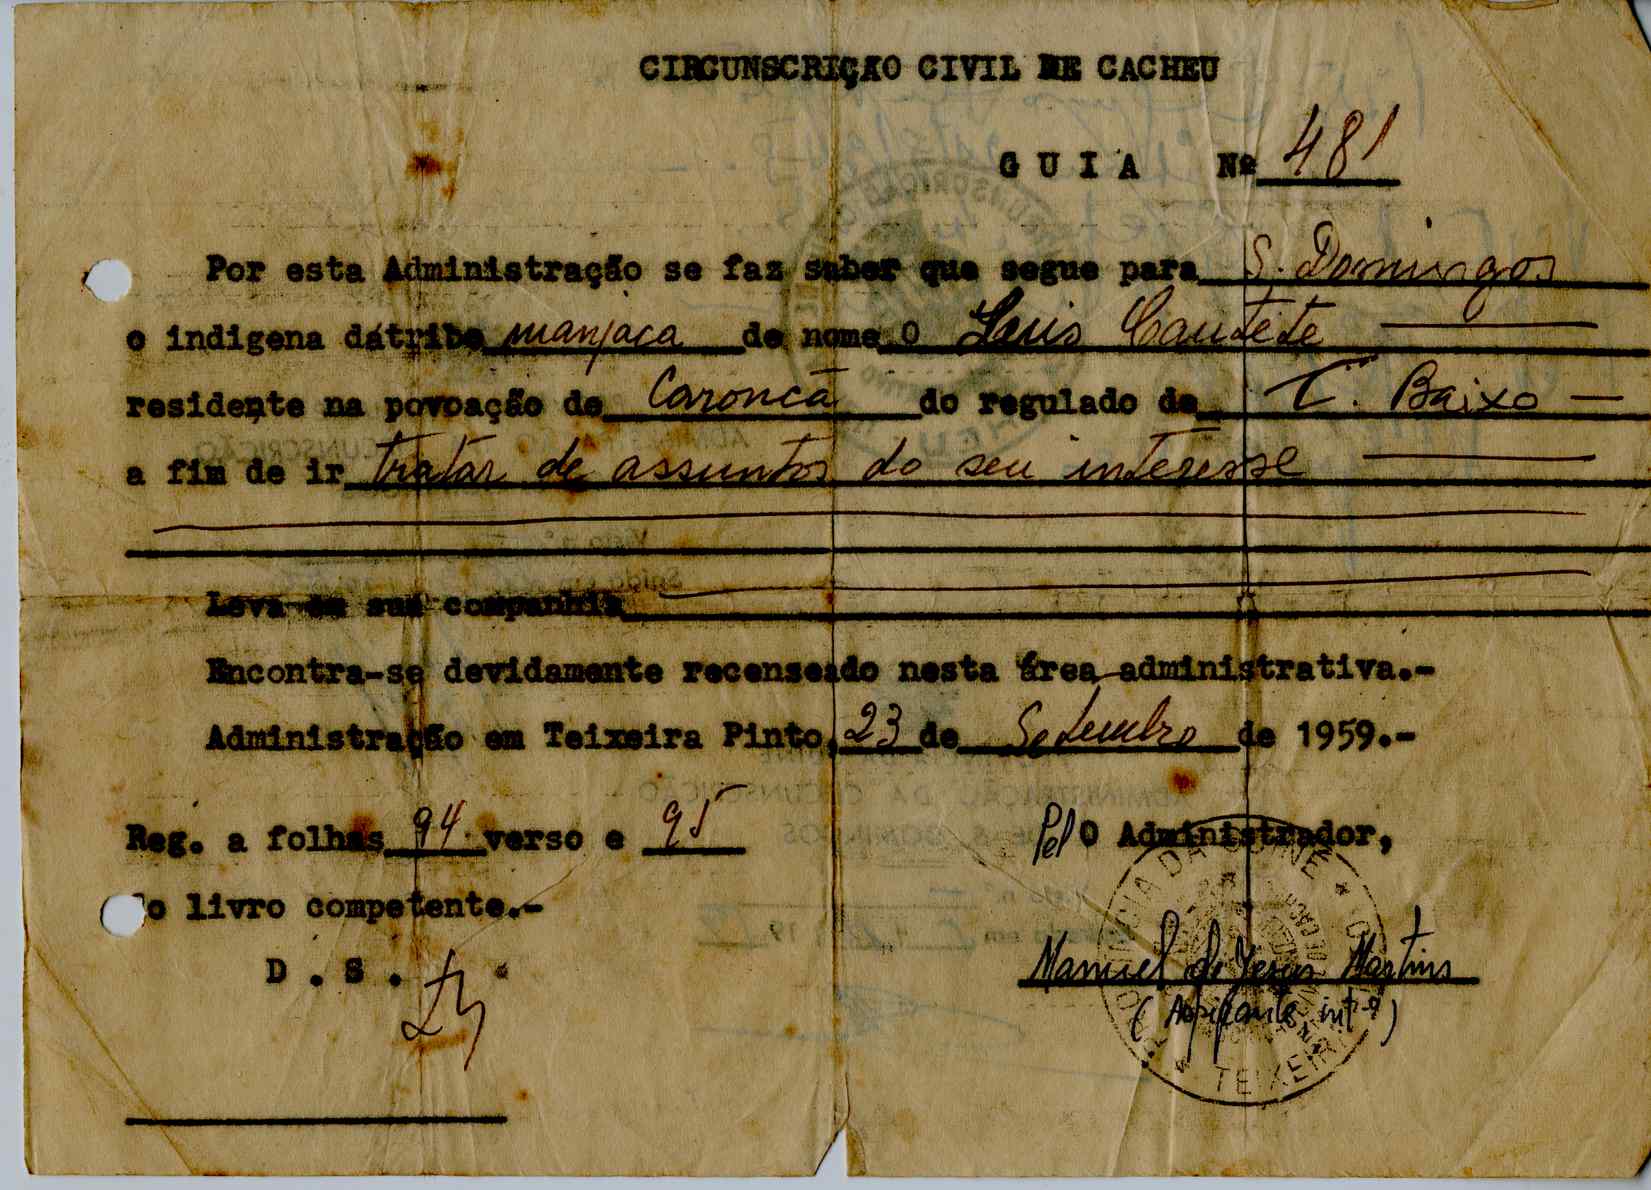 CIRCUNSCRIÇÃO CIVIL DE CACHEU
GUIA Nº 481
Por esta Administração se faz saber que segue para S. Domingos
o indigena da tribo manjaca de nome O Luis Cautete
residente na povoação de Caroncã do regulado de C. Baixo —
a fim de ir tratar de assuntos do seu interesse
Leva em sua companhia
Encontra-se devidamente recenseado nesta área administrativa.-
Administração em Teixeira Pinto, 23 de Setembro de 1959.-
Reg. a folhas 94 verso e 95
Pel O Administrador,
do livro competente.-
D . S .
Manuel de Jesus Martins
(Aspirante intº)
TEIXEIRA